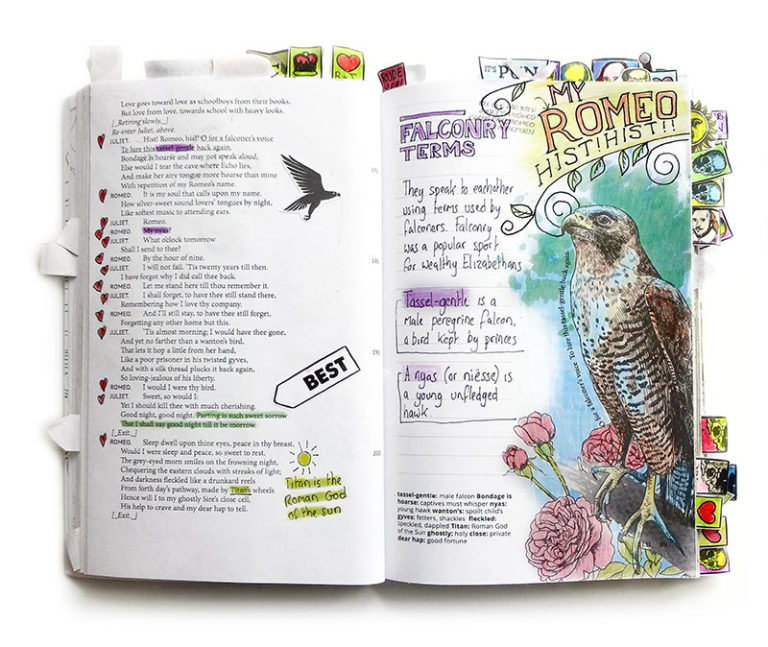 Love goes toward love as schoolboys from their books,
But love from love, towards school with heavy looks.
[_Retiring slowly._]
Re-enter Juliet, above.
JULIET. Hist! Romeo, hist! O for a falconer's voice
To lure this tassel-gentle back again.
Bondage is hoarse and may not speak aloud,
Else would I tear the cave where Echo lies,
And make her airy tongue more hoarse than mine
With repetition of my Romeo's name.
ROMEO. It is my soul that calls upon my name.
How silver-sweet sound lovers' tongues by night,
Like softest music to attending ears.
JULIET. Romeo.
ROMEO. My nyas?
JULIET. What o'clock tomorrow
Shall I send to thee?
ROMEO. By the hour of nine.
JULIET. I will not fail. 'Tis twenty years till then.
I have forgot why I did call thee back.
ROMEO. Let me stand here till thou remember it.
JULIET. I shall forget, to have thee still stand there,
Remembering how I love thy company.
ROMEO. And I'll still stay, to have thee still forget,
Forgetting any other home but this.
JULIET. 'Tis almost morning; I would have thee gone,
And yet no farther than a wanton's bird,
That lets it hop a little from her hand,
Like a poor prisoner in his twisted gyves,
And with a silk thread plucks it back again,
So loving-jealous of his liberty.
ROMEO. I would I were thy bird.
JULIET. Sweet, so would I:
Yet I should kill thee with much cherishing.
Good night, good night. Parting is such sweet sorrow
That I shall say good night till it be morrow.
[_Exit._]
ROMEO. Sleep dwell upon thine eyes, peace in thy breast.
Would I were sleep and peace, so sweet to rest.
The grey-eyed morn smiles on the frowning night,
Chequering the eastern clouds with streaks of light;
And darkness fleckled like a drunkard reels
From forth day's pathway, made by Titan's wheels
Hence will I to my ghostly Sire's close cell,
His help to crave and my dear hap to tell.
[_Exit._]
190
200
BEST
Titan is the
Roman God
of the sun
RUDE
IT'S PUN
FALCONRY
TERMS
They speak to eachother
using terms used by
falconers. Falconry
was a popular sport
for wealthy Elizabethans
Tassel-gentle is a
male peregrine falcon,
a bird kept by princes
A nyas (or niësse) is
a young unfledged
hawk
tassel-gentle: male falcon Bondage is
hoarse: captives must whisper nyas:
young hawk wanton's: spoilt child's
gyves: fetters, shackles fleckled:
speckled, dappled Titan: Roman God
of the Sun ghostly: holy close: private
dear hap: good fortune
MY
ROMEO
HIST! HIST!!
for a falconer's voice To lure this tassel-gentle back again.